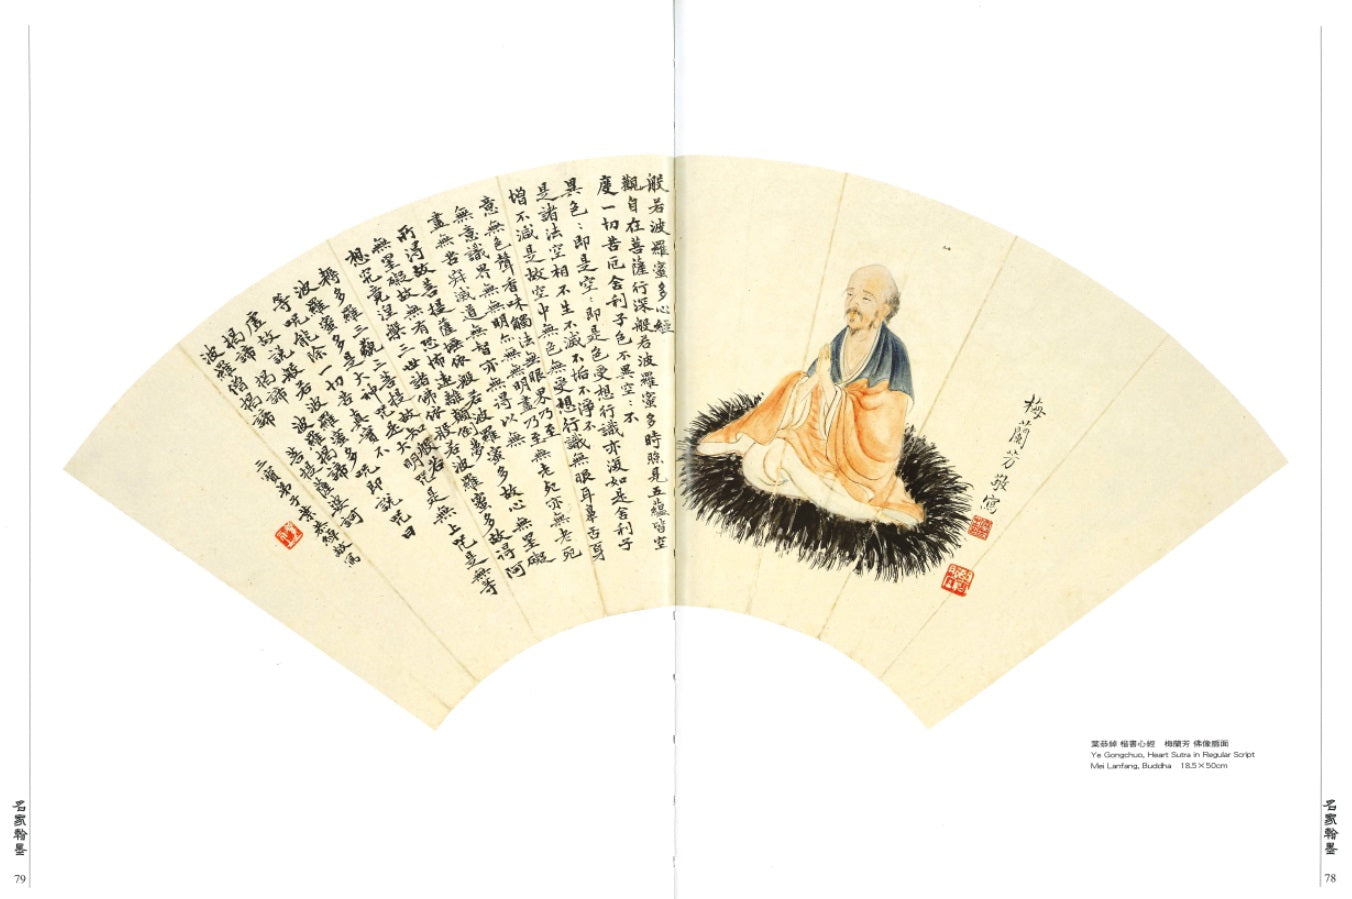 般若波羅蜜多心經
觀自在菩薩行深般若波羅蜜多時照見五蘊皆空
度一切苦厄舍利子色不異空:不
異色:即是空:即是色受想行識亦復如是舍利子
是諸法空相不生不滅不垢不淨不
增不減是故空中無色無受想行識無眼耳鼻舌身
意無色聲香味觸法無眼界乃至
無意識界無無明亦無無明盡乃至無老死亦無老死
盡無苦滅道無智亦無得以無
所得故菩提薩埵依般若波羅蜜多故心無罣礙
無罣礙故無有恐怖遠離顛倒夢
想究竟涅槃三世諸佛依般若波羅蜜多故得阿
耨多羅三藐三菩提故知般若
波羅蜜多是大神咒是大明咒是無上咒是無等
等咒能除一切苦真實不
虛故說般若波羅蜜多咒即說咒曰
揭諦揭諦 波羅揭諦
波羅僧揭諦 菩提薩婆訶
三寶弟子葉恭綽敬寫
梅蘭芳敬寫
葉恭綽 楷書心經 梅蘭芳 佛像扇面
Ye Gongchuo, Heart Sutra in Regular Script
Mei Lanfang, Buddha 18.5×50cm
名家翰墨
79
名家翰墨
78